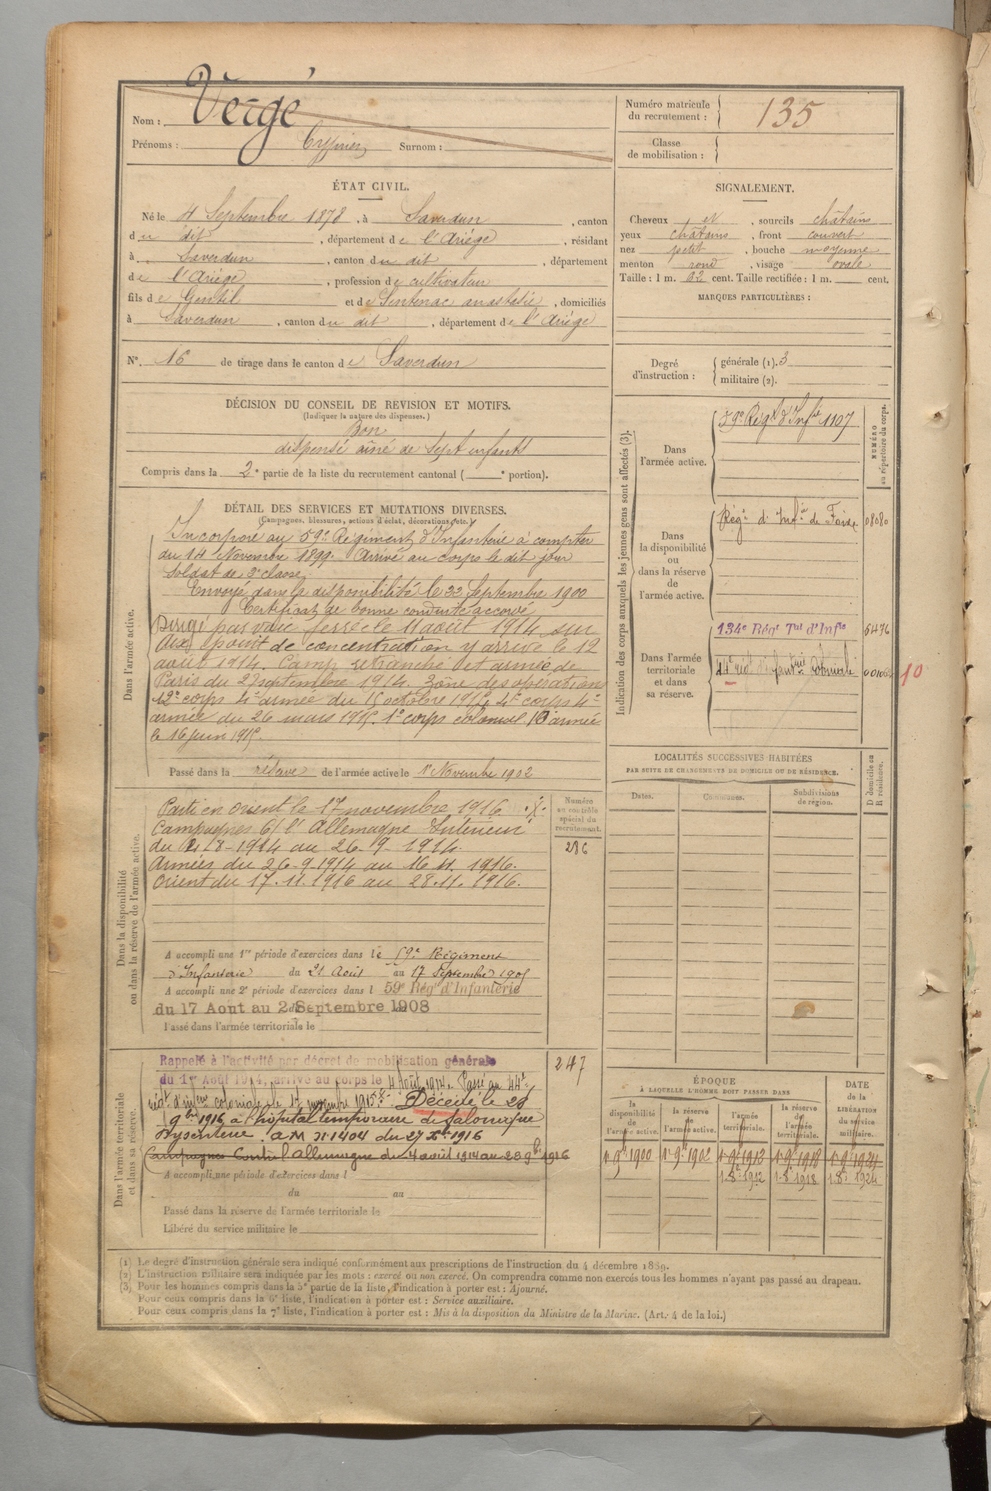 Nom : Vergé
Prénoms : Cyprien Surnom :
Numéro matricule du recrutement : 135
Classe de mobilisation :
ÉTAT CIVIL.
Né le 4 Septembre 1878, à Saverdun, canton
du dit, département de l'Ariège, résidant
à Saverdun, canton du dit, département
de l'Ariège, profession de cultivateur
fils de Gentil et de Sentenac anastasie, domiciliés
à Saverdun, canton du dit, département de l'Ariège
N° 16 de tirage dans le canton de Saverdun
SIGNALEMENT.
Cheveux et, sourcils châtains
yeux châtains, front couvert
nez petit, bouche moyenne
menton rond, visage ovale
Taille : 1 m. 62 cent. Taille rectifiée : 1 m. cent.
MARQUES PARTICULIÈRES :
Degré d'instruction : générale (1). 3
militaire (2).
DÉCISION DU CONSEIL DE RÉVISION ET MOTIFS.
(Indiquer la nature des dispenses.)
Bon
dispensé aîné de Sept enfants
Compris dans la 2e partie de la liste du recrutement cantonal ( e portion).
DÉTAIL DES SERVICES ET MUTATIONS DIVERSES.
(Campagnes, blessures, actions d'éclat, décorations, etc.)
Dans l'armée active.
Incorporé au 59e Régiment d'Infanterie à compter
du 14 Novembre 1899. Arrivé au corps le dit jour
Soldat de 2e classe
Envoyé dans la disponibilité le 22 Septembre 1900
Certificat de bonne conduite accordé
Dirigé par voie ferrée le 11 août 1914 sur
point de concentration y arrive le 12
août 1914. Camp retranché et armée de
Paris du 23 septembre 1914. Zône des opérations
12e corps 4e armée du 15 octobre 1914, 4e corps 4e
armée du 26 mars 1915. 1er corps colonial 10 armée
le 16 juin 1915.
Passé dans la réserve de l'armée active le 1er Novembre 1902
Indication des corps auxquels les jeunes gens sont affectés (3).
NUMÉRO au répertoire du corps.
Dans l'armée active.
59e Régt d'Infie 1107
Dans la disponibilité ou dans la réserve de l'armée active.
Régt d'Infie de Foix 08080
Dans l'armée territoriale et dans sa réserve.
134e Régt Tal d'Infie 5476
44e régt d'infanterie Coloniale
10
LOCALITÉS SUCCESSIVES HABITÉES
PAR SUITE DE CHANGEMENTS DE DOMICILE OU DE RÉSIDENCE.
Dates. Communes. Subdivisions de région. D domicile ou R résidence.
Dans la disponibilité ou dans la réserve de l'armée active.
Numéro au contrôle spécial du recrutement.
236
Parti en orient le 17 novembre 1916. .X.
Campagnes c/ l'Allemagne Intérieur
du 12-8-1914 au 26-9-1914.
Armées du 26-9-1914 au 16-11-1916.
Orient du 17.11.1916 au 28.11.1916.
A accompli une 1re période d'exercices dans le 59e Régiment
d'Infanterie du 21 Août au 17 Septembre 1905
A accompli une 2e période d'exercices dans l 59e Régt d'Infanterie
du 17 Aout au 2 Septembre 1908
Passé dans l'armée territoriale le
Dans l'armée territoriale et dans sa réserve.
247
Rappelé à l'activité par décret de mobilisation générale
du 1er Août 1914, arrivé au corps le 4 Août 1914. Passé au 44e
régt d'infrie coloniale le 17 novembre 1915. Décédé le 28
9bre 1916 à l'hôpital temporaire de Salonique
Dysenterie. a.M. N 1404 du 27 Xbre 1916
Campagnes Contre l'Allemagne du 4 août 1914 au 28 9bre 1916
A accompli une période d'exercices dans l
du au
Passé dans la réserve de l'armée territoriale le
Libéré du service militaire le
ÉPOQUE
À LAQUELLE L'HOMME DOIT PASSER DANS
la disponibilité de l'armée active. la réserve de l'armée active. l'armée territoriale. la réserve de l'armée territoriale.
DATE DE LA LIBÉRATION du service militaire.
1.9bre 1900 1.9bre 1902 1.9bre 1912 1.9bre 1918 1.9bre 1924
1.8bre 1912 1.8bre 1918 1.8bre 1924
(1) Le degré d'instruction générale sera indiqué conformément aux prescriptions de l'instruction du 4 décembre 1889.
(2) L'instruction militaire sera indiquée par les mots : exercé ou non exercé. On comprendra comme non exercés tous les hommes n'ayant pas passé au drapeau.
(3) Pour les hommes compris dans la 5e partie de la liste, l'indication à porter est : Ajourné.
Pour ceux compris dans la 6e liste, l'indication à porter est : Service auxiliaire.
Pour ceux compris dans la 7e liste, l'indication à porter est : Mis à la disposition du Ministre de la Marine. (Art. 4 de la loi.)